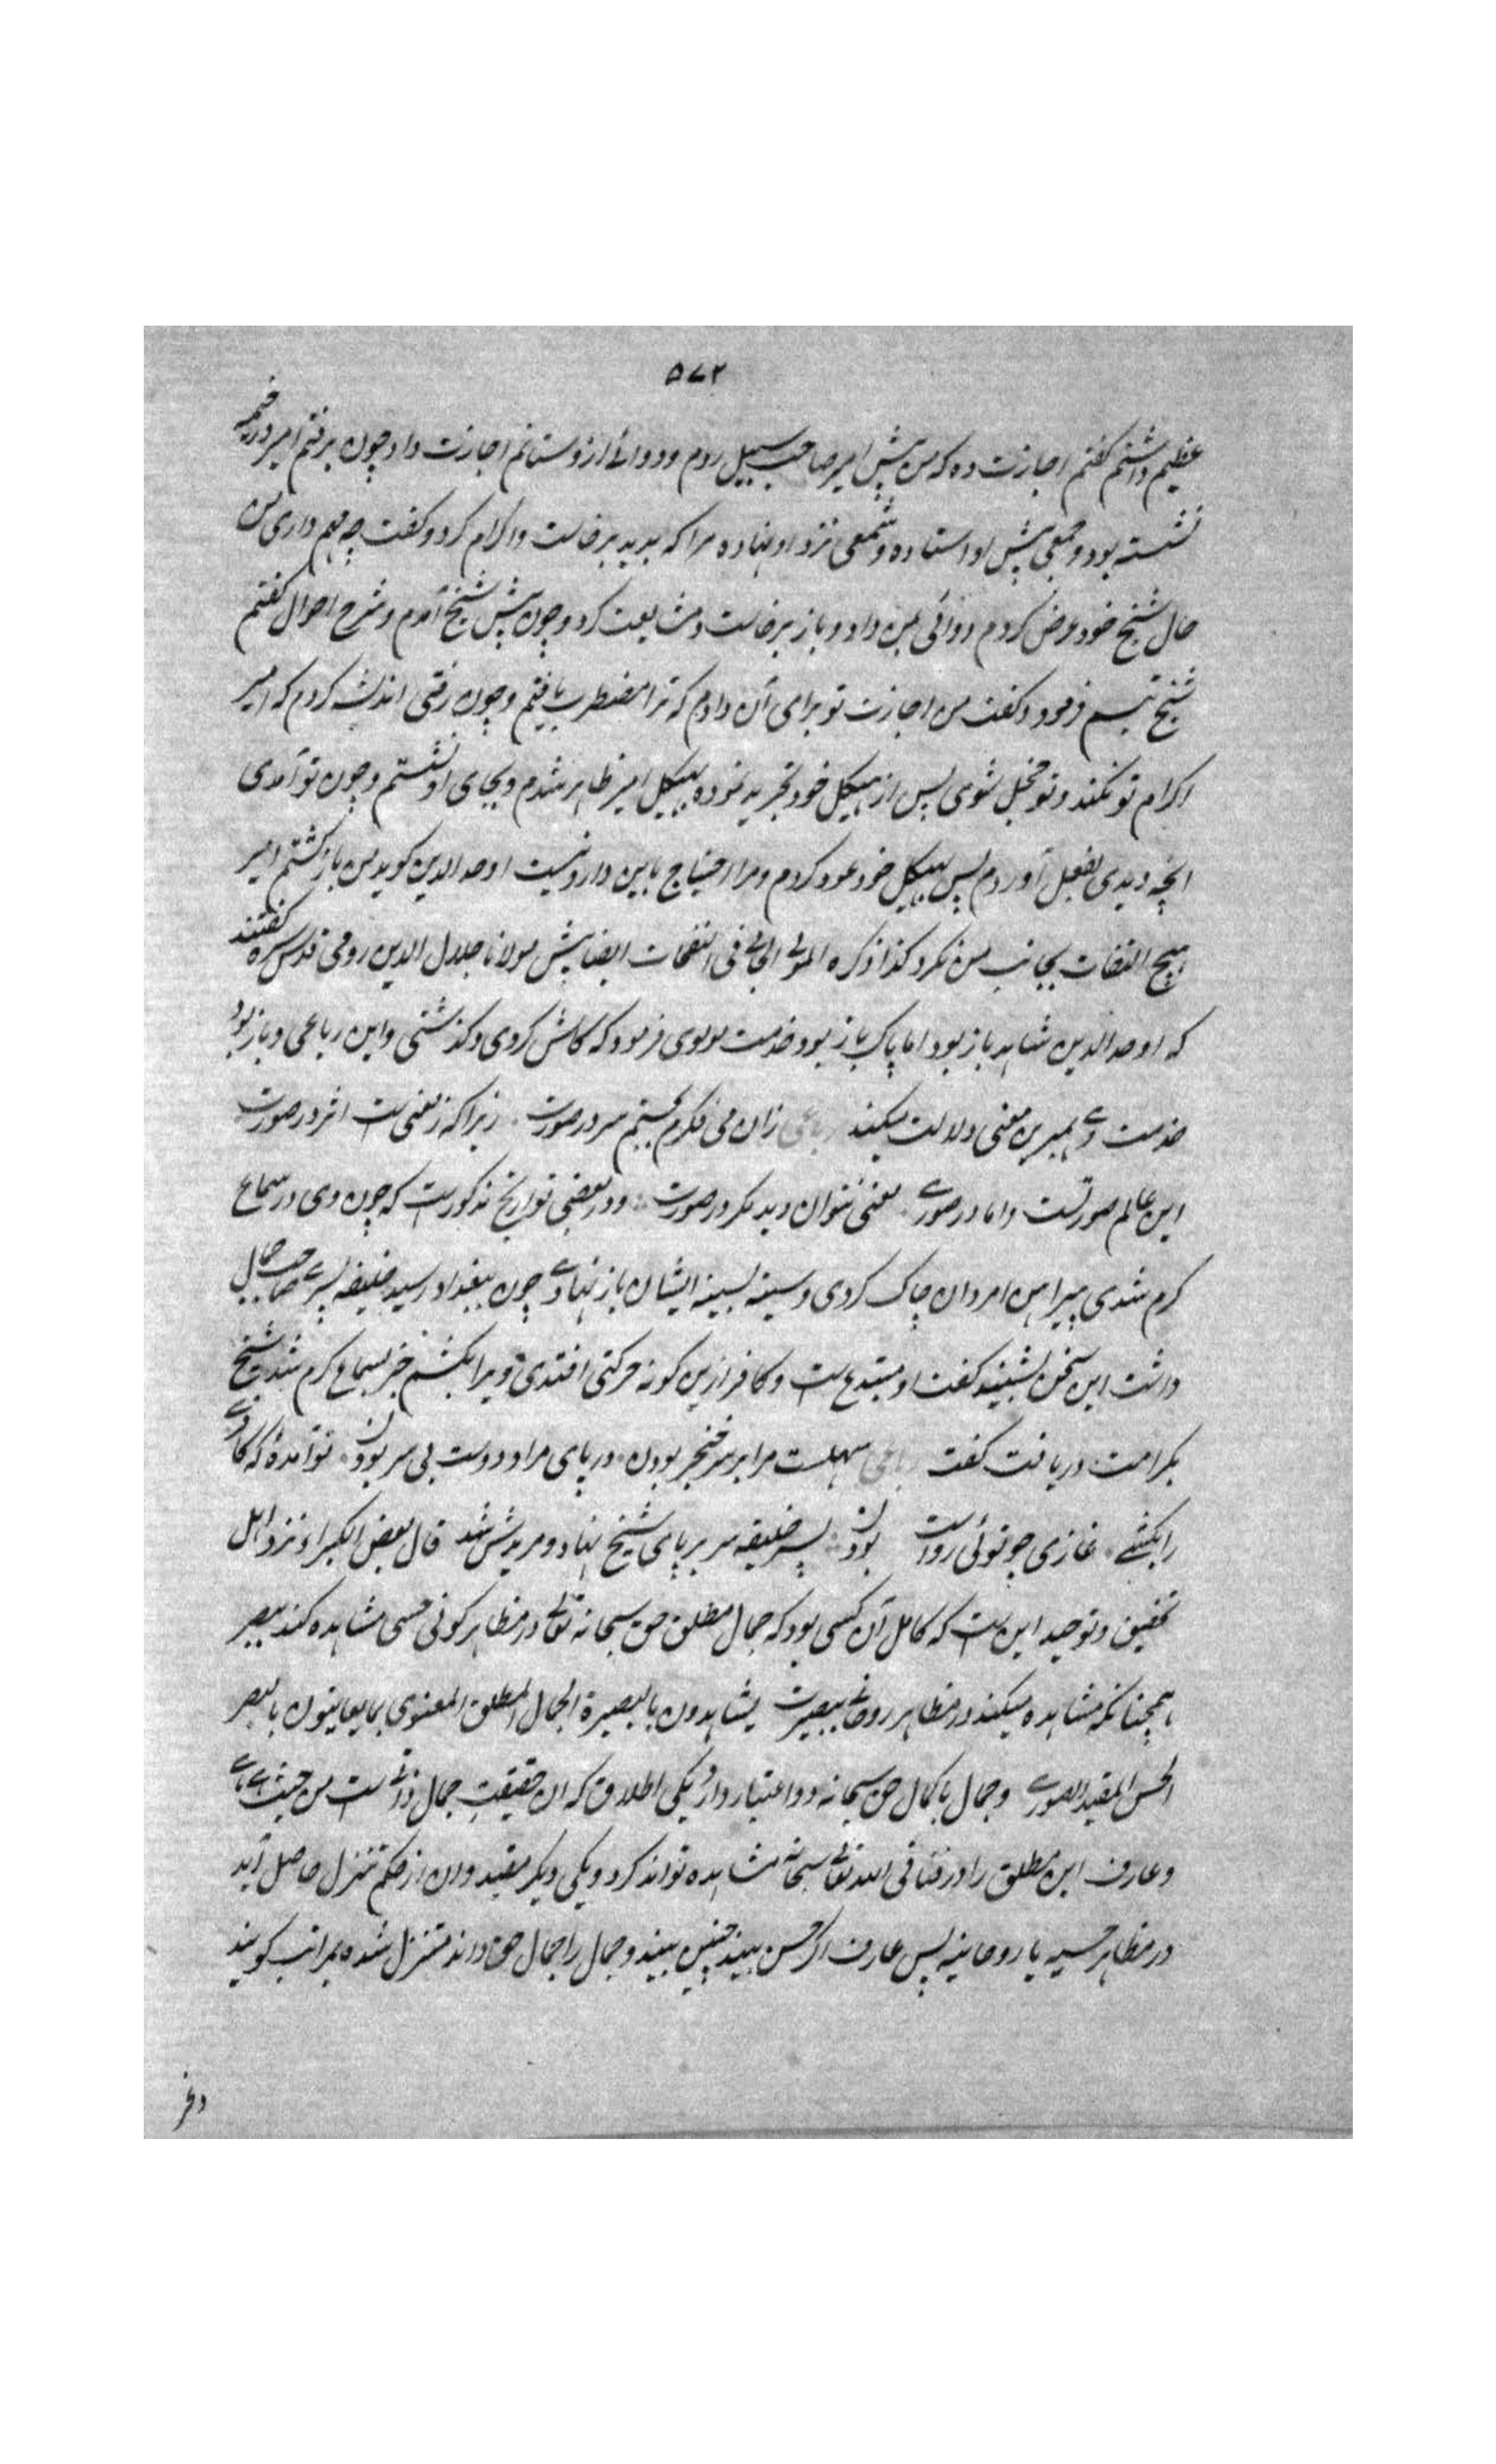 ۵۷۲
عظیم داشتم کفتم اجازت ده که من پیش امیر صاحب سبیل روم و دوائے ازو ستانم اجازت داد چون برفتم امیر در خیمه
نشسته بود و جمعی پیش او استاده و شمعی نزد او نهاده مرا که بدید برخاست و اکرام کرد و کفت چه مهم داری من
حال شیخ خود عرض کردم دوائی بمن داد و باز برخاست و مشایعت کرد و چون پیش شیخ آمدم و شرح احوال کفتم
شیخ تبسم فرمود و کفت من اجازت تو برای آن دادم که ترا مضطرب یافتم و چون رفتی اندیشه کردم که امیر
اکرام تو نکند و تو خجل شوی پس از هیکل خود تجرید نموده بهیکل امیر ظاهر شدم و بجای او نشستم و چون تو آمدی
انچه دیدی بفعل آوردم پس بهیکل خود عود کردم و مرا احتیاج باین دارو نیست اوحد الدین کوید من بازکشتم امیر
هیچ التفات بجانب من نکرد کذا ذکره المولی الجامی فی النفحات ایضا پیش مولانا جلال الدین رومی قدس سره کفتند
که اوحد الدین شاهد باز بود اما پاک باز بود خدمت مولوی فرمود که کاش کردی و کذشتی و این رباعی و باز بود
خدمت وے همبرین معنی دلالت میکند رباعی زان می نکرم بچشم سر در صورت زیرا که ز معنی ست اثر در صورت
این عالم صورتست و ما در صورے معنی نتوان دید مکر در صورت و در بعضی تواریخ مذکورست که چون وی در سماع
کرم شدی پیراهن امردان چاک کردی و سینه بسینه ایشان باز نهادے چون ببغداد رسید خلیفه پسرے صاحب جمال
داشت این سخن بشنید کفت او مبتدع ست و کافر ازین کونه حرکتی افتدی ویرا بکشم خبر بسماع کرم شد شیخ
بکرامت دریافت کفت رباعی سهلست مرا بر سر خنجر بودن در پای مراد دوست بی سر بودن تو آمدۀ که کافرے
را بکشے غازی چو توئی رواست بودن پسر خلیفه سر بر پای شیخ نهاد و مریدش شد قال بعض الکبراء نزد اهل
تحقیق و توحید این ست که کامل آن کسی بود که جمال مطلق حق سبحانه تعالی در مظاهر کونی حسی مشاهده کند ببصر
همچنانکه مشاهده میکند در مظاهر روحانی ببصیرت یشاهدون بالبصیرة الجمال المطلق المعنوی بما یعاینون بالبصر
الحسن المقید الصورے و جمال با کمال حق سبحانه دو اعتبار دارد یکی اطلاق که ان حقیقت جمال ذاتی ست من حیث هے هے
و عارف این مطلق را در فنا فی الله تعالی سبحانه مشاهده تواند کرد و یکی دیکر مقید و ان از حکم تنزل حاصل آید
در مظاهر حسیه یا روحانیه پس عارف اکر حسن بیند چنین بیند و جمال را جمال حق داند متنزل شده بمراتب کونیه
وغر